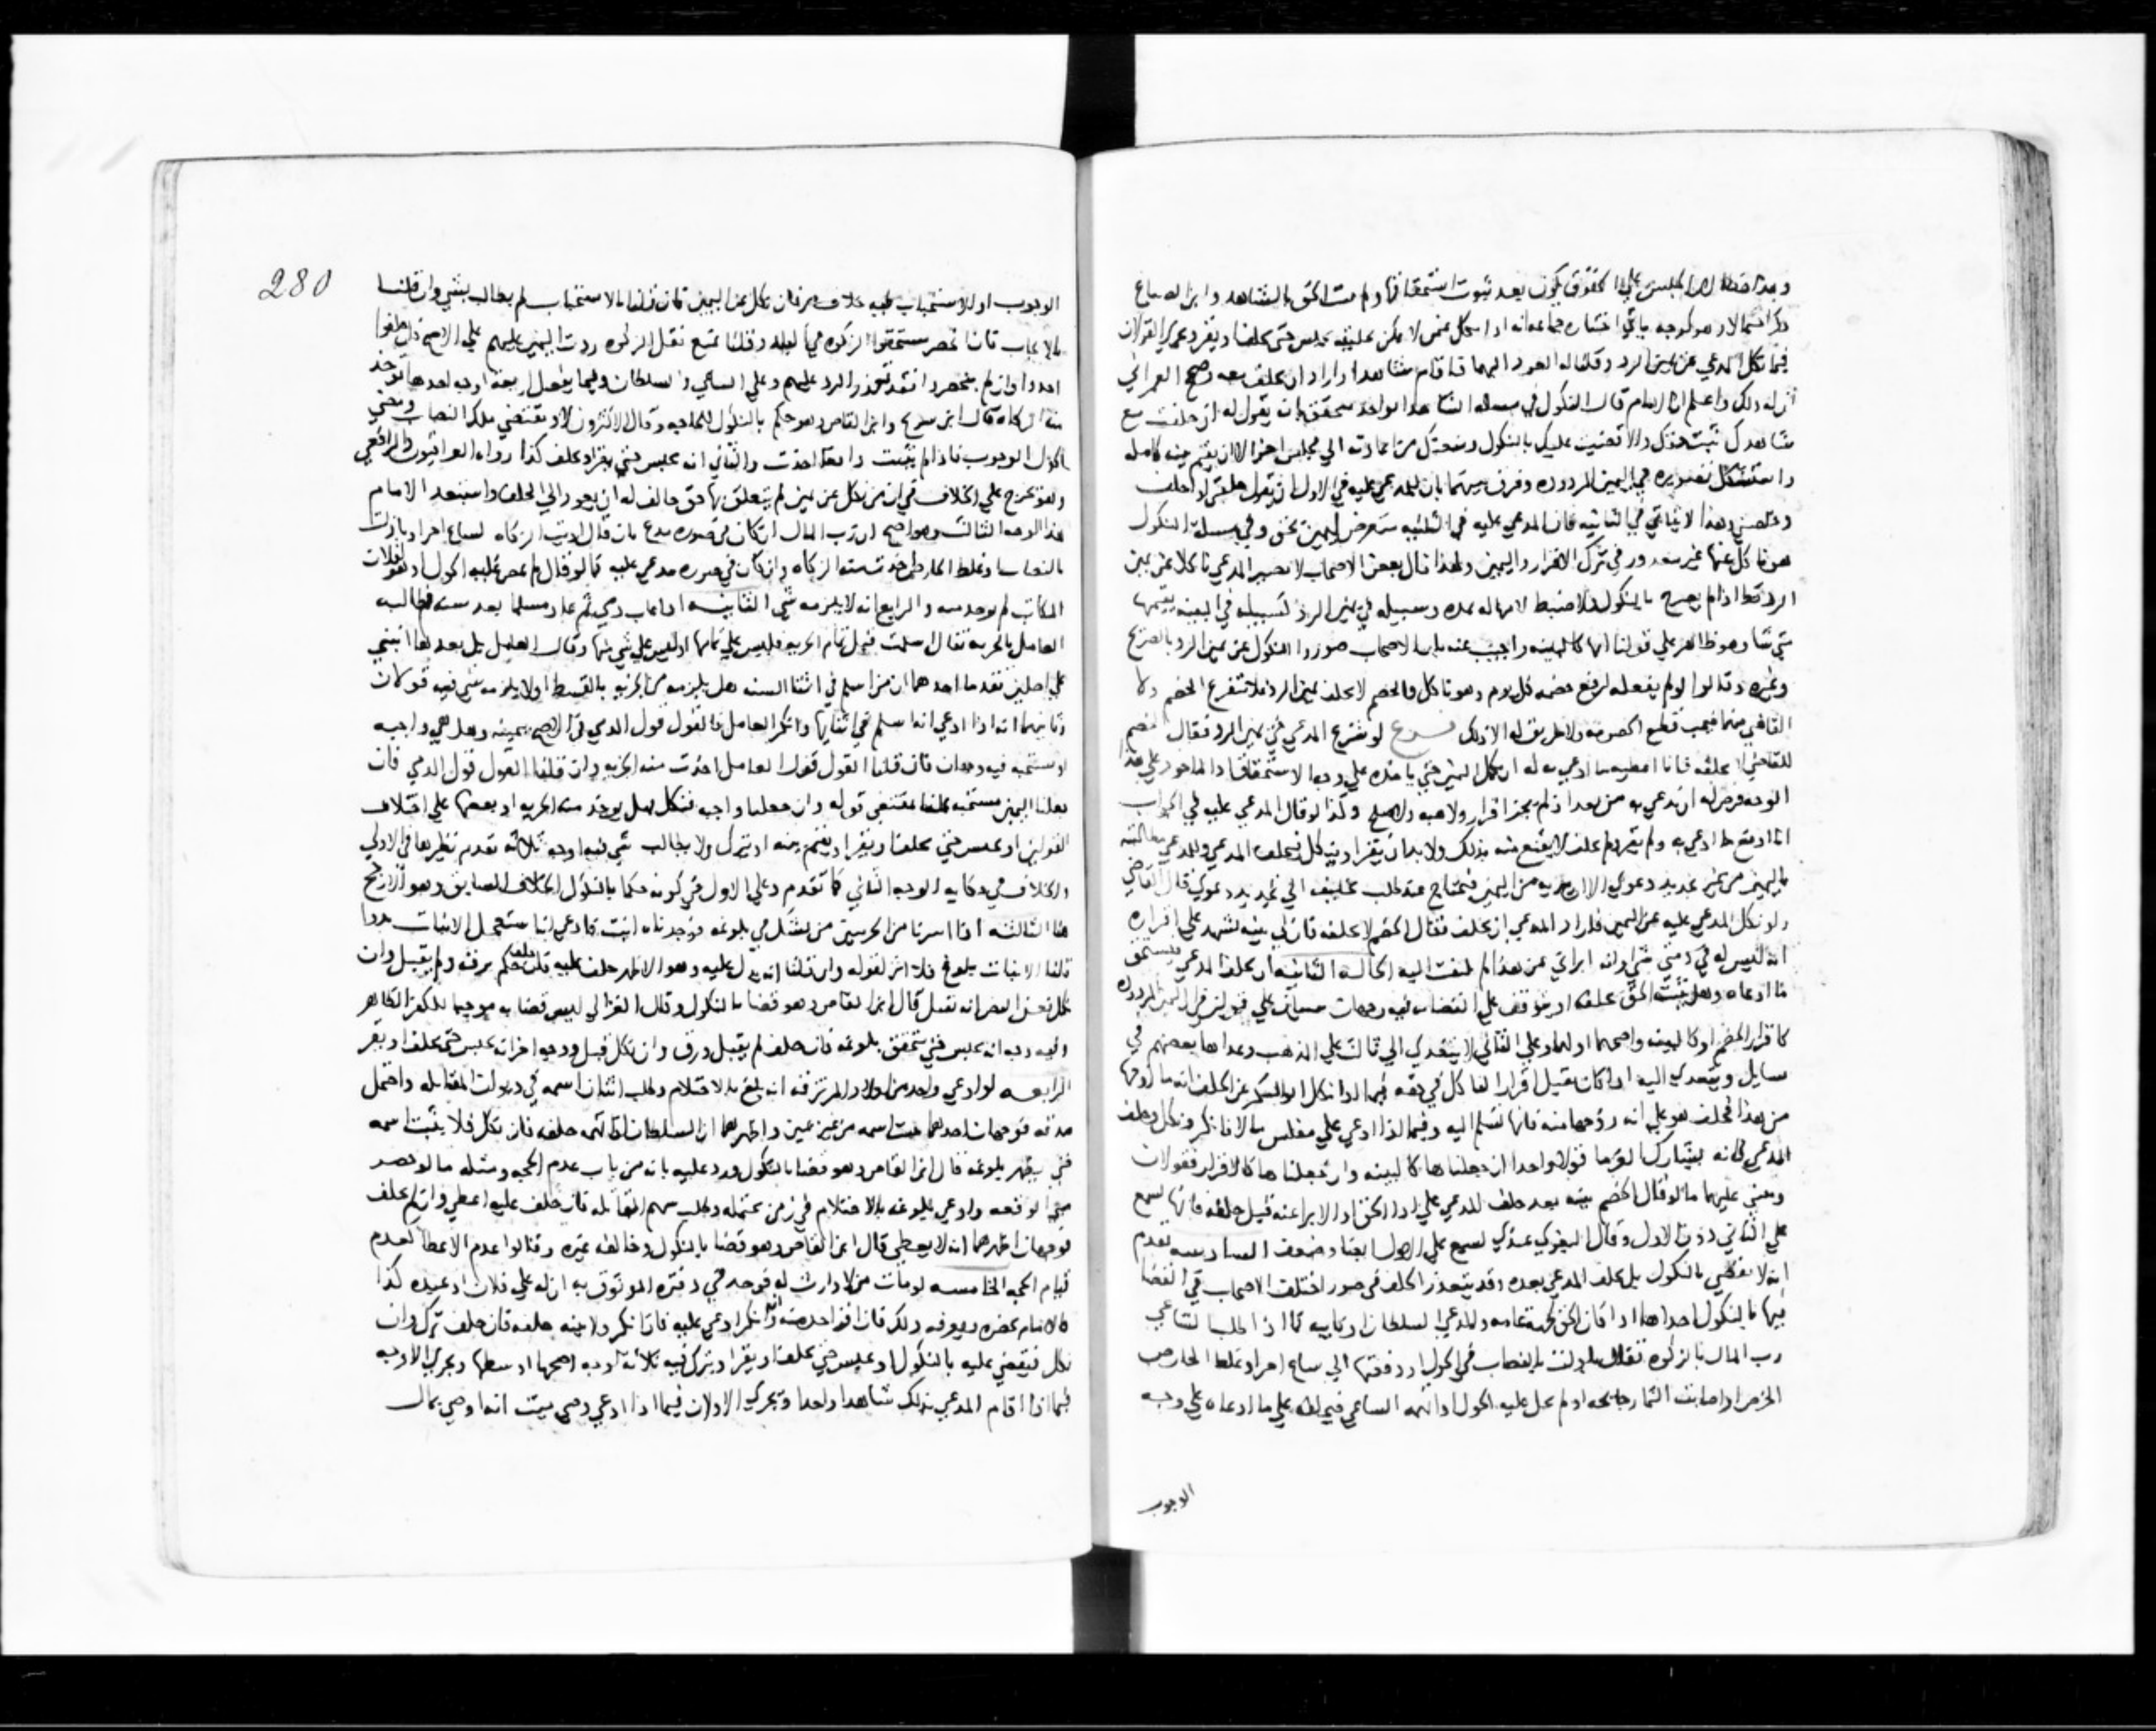 وهذا لان الحبس على الحقوق يكون بعد ثبوت استحقاقها ولم يثبت الحق بالشاهد وابن الصباغ
فيما نكل المدعي عن يمين الرد وقلنا له العود اليها فاقام شاهدا واراد ان يحلف معه وصحح العمراني
ان له ذلك واعلم ان الامام قال النكول في مسلة الشاهد الواحد يتحقق بان يقول له ان حلفت مع
شاهدك ثبت حقك والا قضيت عليك بالنكول ومنعتك من اعادته الي مجلس اخر الا ان يقيم بينه كامله
واستشكل تصويره في اليمين المردوده وفرق بينهما بان المدعي عليه في الاول ان يقول حلفني او احلف
وخلصني وهذا لا يتاتي في الثانيه فان المدعي عليه في الثانيه بتعرض اليمين بحق وفي مسلة النكول
هو ناكل عنها غير معذور في ترك الاقرار واليمين ولهذا قال بعض الاصحاب لا يصير المدعي ناكلا عن يمين
الرد قط اذا لم يصرح بالنكول فلا ضبط لامهاله بمده وسبيله في يمين الرد كسبيله في البينه يقيمها
متي شا وهو ظاهر علي قولنا انها كالبينه واجيب عنه بان الاصحاب صوروا النكول عن يمين الرد بالصريح
وغيره وقالوا لو لم يفعله لرفع خصمه كل يوم وهو ناكل والخصم لا يحلف يمين الرد فلا تتفرغ الخصم ولا
القاضي منها فيجب قطع الخصومه ولا طريق له الا ذلك فرع لو شرع المدعي في يمين الرد فقال الخصم
للقاضي لا تحلفه فانا اعطيه ما ادعي به له ان يكمل اليمين حتي ياخذه علي وجه الاستحقاق والماخوذ علي هذا
الوجه فرض له ان يدعي به من بعد اذ لم يجز اقرار ولا هبه ولا صلح وكذا لو قال المدعي عليه في الجواب
انا ادفع ما ادعي به ولم يقر ولم يحلف لا يقنع منه بذلك ولا بد ان يقر او ينكل فيحلف المدعي وللمدعي مطالبته
باليمين من غير تجديد دعوي الا ان يبريه من اليمين فيحتاج عند طلب تحليفه الي تجديد دعوي قال القاضي
ولو نكل المدعي عليه عن اليمين فاراد المدعي ان يحلف فقال الخصم لا تحلفه فان لي بينه تشهد علي اقراره
انه ليس له في ذمتي شي او انه ابراني عن هذا لم يلتفت اليه الحالة الثانيه ان يحلف المدعي فيستحق
ما ادعاه وهل يثبت الحق بحلفه او يتوقف علي القضا به فيه وجهان مبنيان علي قولين في ان اليمين المردوده
كاقرار الخصم او كالبينه واصحهما اولهما وعلي الثاني لا يتعدي الي ثالث علي المذهب وعداها بعضهم في
مسايل ويتعدي اليه اذا كان يقبل اقرار الناكل في حقه
من هذا فحلف هو علي انه زوجها منه فانها تسلم اليه وفيما اذا ادعي علي مفلس مالا فانكر ونكل وحلف
المدعي فانه يشارك الغرما قولا واحدا ان جعلناها كالبينه وان جعلناها كالاقرار فقولان
ويبني عليهما ما لو قال الخصم بينه بعد حلف المدعي علي ادا الحق او الابرا عنه قبل حلفه فانها تسمع
علي الثاني دون الاول وقال البغوي عندي تسمع علي الاول ايضا وضعف السادسه تقدم
انه لا يقضي بالنكول بل يحلف المدعي بعده وقد يتعذر الحلف في صور اختلف الاصحاب في القضا
فيها بالنكول احداها اذا كان الحق لجهة عامه والمدعي السلطان او نايبه كما اذا طلب الساعي
رب المال بالزكوه فقال بادلت بالنصاب في الحول او دفعتها الي ساع اخر او غلط الخارص
الخرص او اصابت الثمار جايحه او لم يحل عليه الحول واتهمه الساعي فيحلفه علي ما ادعاه علي وجه
الوجوب
280
الوجوب او الاستحباب فيه خلاف مر فان نكل عن اليمين فان قلنا بالاستحباب لم يطالب بشي وان قلنا
بالايجاب فان انحصر مستحقوا الزكوه في البلد وقلنا يمتنع نقل الزكوه ردت اليمين عليهم علي الاصح فان حلفوا
اخذوا وان لم ينحصروا فقد تعذر الرد عليهم وعلي الساعي والسلطان وفيما يفعل اربعة اوجه احدها توخذ
منه الزكاه قال ابن سريج وابن القاص وهو حكم بالنكول للحاجه وقال الاكثرون لا وتقتضي ملك النصاب ومضي
الحول الوجوب فاذا لم يثبت دافعا اخذت والثاني انه يحبس حتي يقر او يحلف كذا رواه العراقيون والرافعي
وهو تخرج علي الخلاف في ان من نكل عن يمين لم يتعلق بها حق حالف له ان يعود الي الحلف واستبعده الامام
هذا الوجه الثالث وهو اصح ان رب المال ان كان في صوره مدع بان قال اديت الزكاه لساع اخر او بادلت
بالنصاب او غلط الخارص اخذت منه الزكاه وان كان في صوره مدعي عليه كما لو قال لم يمض عليه الحول او هو لفلان
المكاتب لم يوخذ منه والرابع انه لا يلزمه شي الثانيه اذا غاب ذمي ثم عاد مسلما بعد سنه فطالبه
العامل بالجزيه فقال اسلمت قبل تمام الجزيه فليس علي تمامها او ليس علي شي منها وقال العامل بل بعدها انبني
علي اصلين تقدما احدهما ان من اسلم في اثنا السنه هل يلزمه من الجزيه بالقسط او لا يلزمه شي فيه قولان
وثانيهما انه اذا ادعي انه اسلم في اثنايها وانكر العامل فالقول قول الذمي في الاصح بيمينه وهل هي واجبه
او مستحبه فيه وجهان فان قلنا القول قول العامل اخذت منه الجزيه وان قلنا القول قول الذمي فان
جعلنا اليمين مستحبه عملنا بمقتضي قوله وان جعلنا واجبه فنكل فهل يوخذ منه الجزيه او بعضها علي اختلاف
القولين او يحبس حتي يحلف او يقر او يقيم بينه او يترك ولا يطالب بشي فيه اوجه ثلاثه تقدم نظيرها في الاولي
والخلاف في حكاية الوجه الثاني كما تقدم وعلي الاول في كونه حكما بالنكول الخلاف السابق وهو الارجح
هنا الثالثه اذا اسرنا من الحربيين من يشكل في بلوغه فوجدناه انبت فادعي انه استعجل الانبات بدوا
قلنا الانبات بلوغ فلا اثر لقوله وان قلنا انه يدل عليه وهو الاظهر حلف عليه فان حلف حكم برقه ولم يقتل وان
نكل فعن النص انه يقتل قال ابن القاص وهو قضا بالنكول وقال الغزالي ليس قضا به موجبه الكفر الظاهر
وفيه وجه انه يحبس حتي يتحقق بلوغه فان حلف لم يقبل ورق وان نكل قتل ووجه اخر انه يحبس حتي يحلف او يقر
الرابعه لو ادعي واحد من اولاد المرتزقه انه بلغ بالاحتلام وطلب اثبات اسمه في ديوان المقاتله واحتمل
صدقه فوجهان احدهما يثبت اسمه من غير يمين واظهرهما ان السلطان ان اتهمه حلفه فان نكل فلا يثبت اسمه
حتي يظهر بلوغه قال ابن القاص وهو قضا بالنكول ورد عليه بانه من باب عدم الحجه ومثله ما لو حضر
صبي الوقعه وادعي بلوغه بالاحتلام في زمن يحتمله وطلب سهم المقاتله فان حلف عليه اعطي وان لم يحلف
فوجهان اظهرهما انه لا يعطي قال ابن القاص وهو قضا بالنكول وخالفه غيره وقالوا عدم الاعطا لعدم
قيام الحجه الخامسه لو مات من لا وارث له فوجد في دفتره الموثوق به ان له علي فلان او عبيده كذا
نكل فيقضي عليه بالنكول او يحبس حتي يحلف او يقر او يترك فيه ثلاثة اوجه اصحها اوسطها ويجري الاوجه
فيما اذا اقام المدعي بذلك شاهدا واحدا ويجري الاولان فيما اذا ادعي وصي ميت انه اوصي بمال